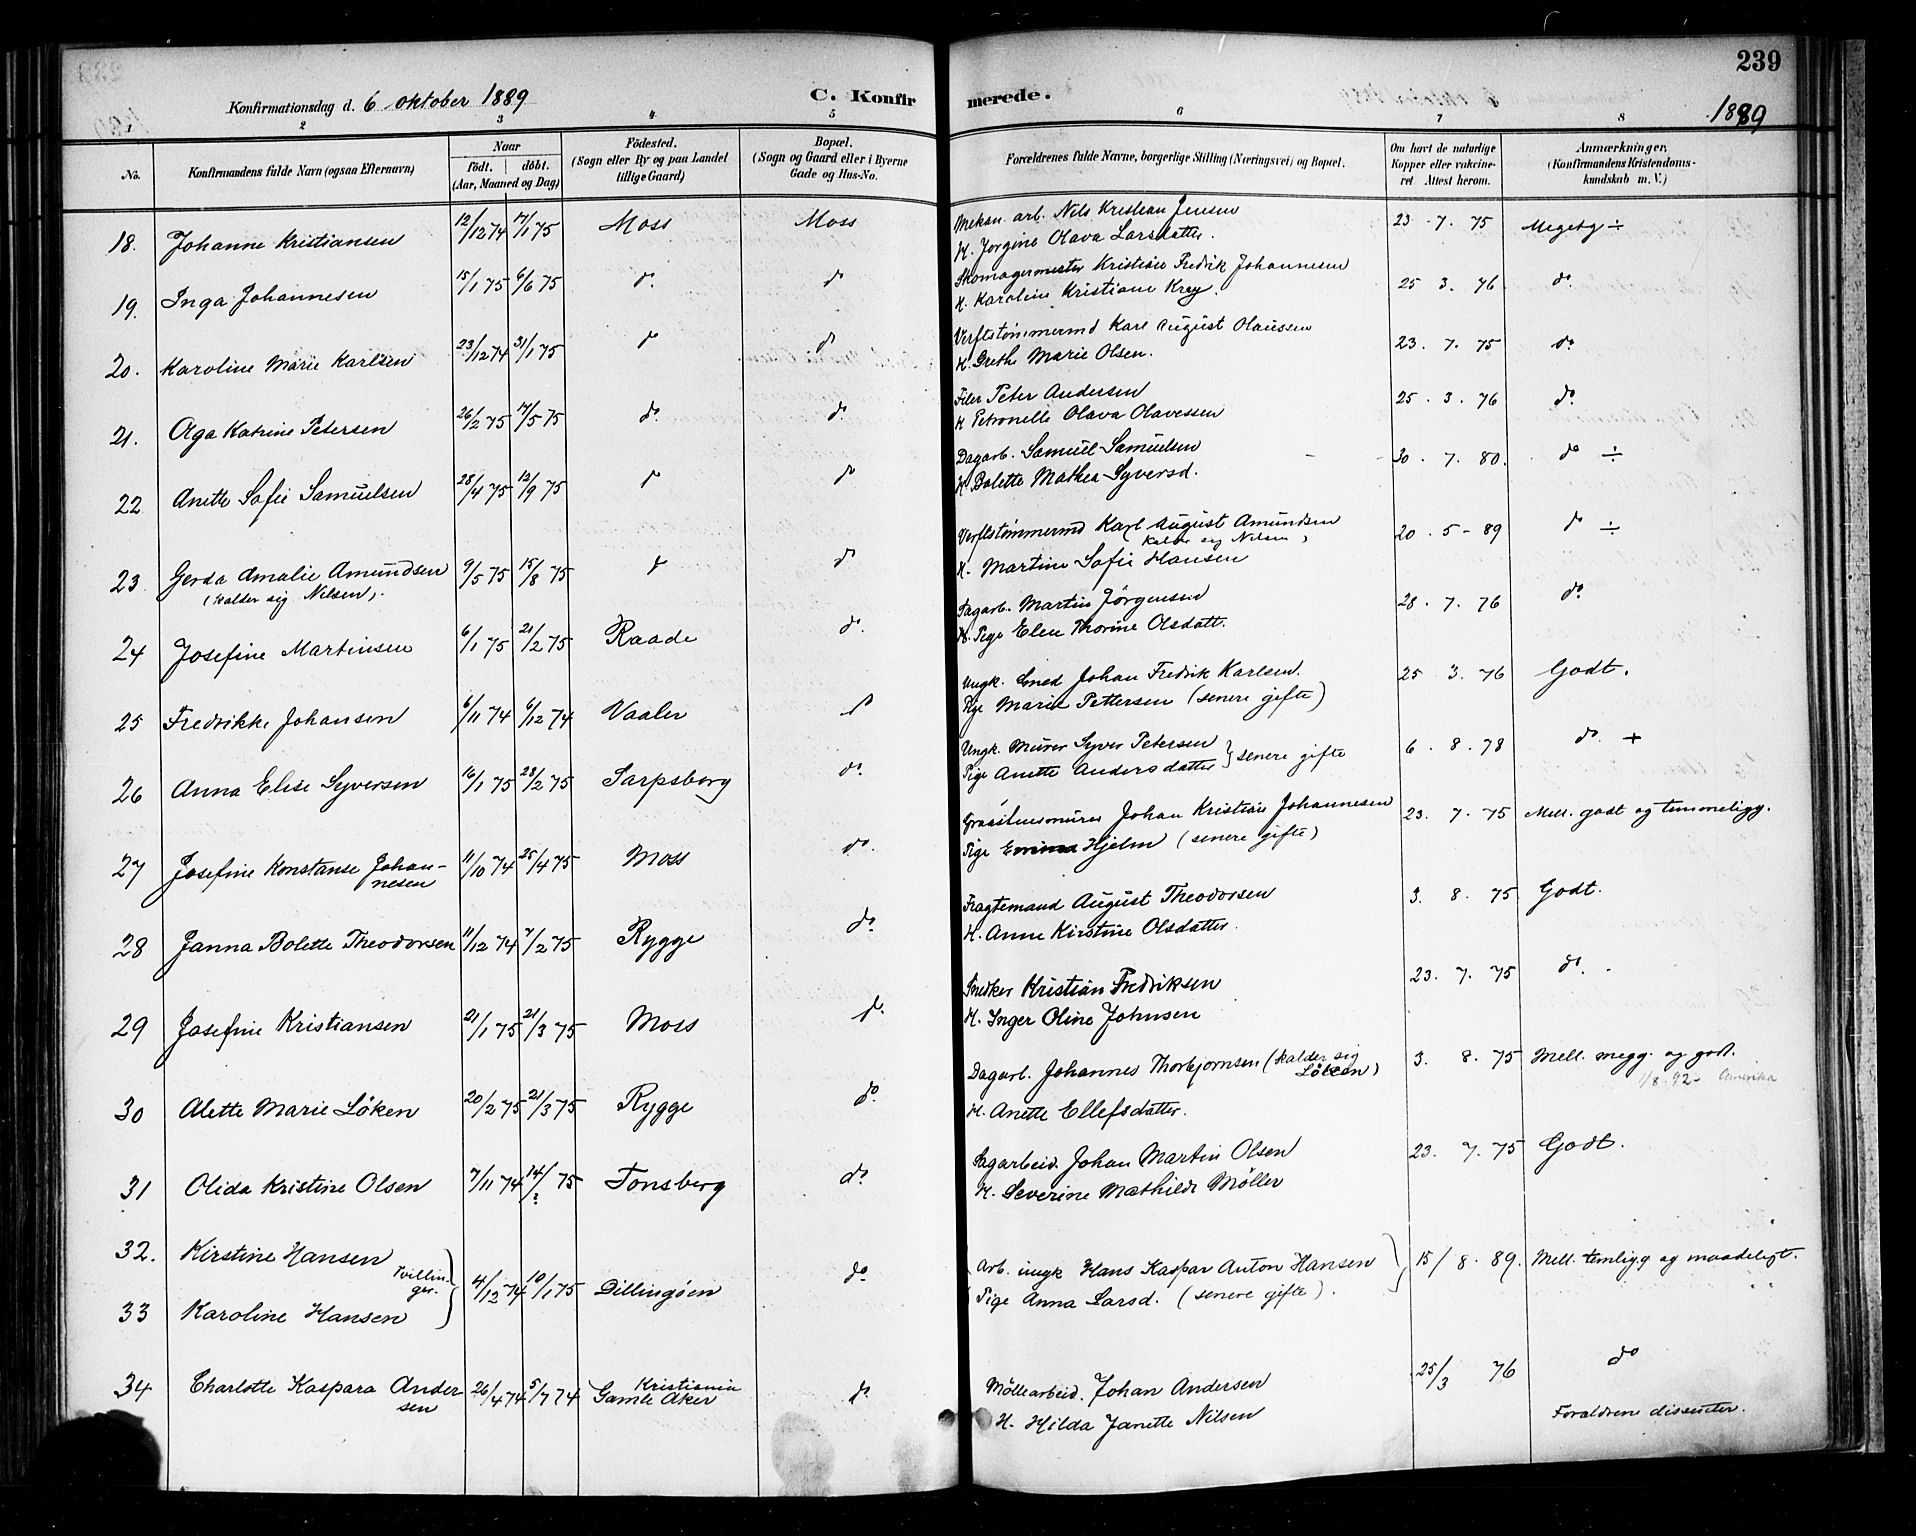 239
Konfirmationsdag d. 6 oktober 1889
C. Konfirmerede.
1889
1 2 3 4 5 6 7 8
No.
Konfirmandens fulde Navn (ogsaa Efternavn)
Naar
födt. döbt.
(Aar, Maaned og Dag)
Födested.
(Sogn eller By og paa Landet
tillige Gaard)
Bopæl.
(Sogn og Gaard eller i Byerne
Gade og Hus-No.
Forældrenes fulde Navne, borgerlige Stilling (Næringsvei) og Bopæl.
Om havt de naturlige
Kopper eller vakcine-
ret Attest herom.
Anmærkninger,
(Konfirmandens Kristendoms-
kundskab m. V.)
18. Johanne Kristiansen 12/12 74 17/1 75 Moss Moss Mekan. arb. Nils Kristian Jensen 23 - 7. 75 Megetg ÷
H. Jorgine Olava Larsdatter.
19. Inga Johannesen 15/1 75 6/6 75 do. do Skomagermester Kristian Fredrik Johannesen 25 3. 76 do.
H. Karoline Kristiane Krey.
20. Karoline Marie Karlsen 23/12 74 31/1 75 do do Verftstømmermd Karl August Olaussen 23. 7. 75 do.
H. Grethe Marie Olsen.
21. Olga Katrine Petersen 26/2 75 17/5 75 do. do. Filer Peter Andersen 25. 3. 76 do.
H Petronelle Olava Olavessen
22 Anette Sofie Samuelsen 28/4 75 12/9 75 do do Dagarb. Samuel Samuelsen 30. 7. 80. do ÷
H. Bolette Mathea Syversd.
23 Gerda Amalie Amundsen 9/5 75 15/8 75 do do Verftstømmermd Karl August Amundsen 20. 5 - 89 do ÷
(kalder sig Nilsen). kalder sig Nilsen)
H. Martine Sofie Hansen
24 Josefine Martinsen 6/1 75 21/2 75 Raade do. Sagarb. Martin Jörgensen 28. 7. 76 do.
H. Pige Elen Thorine Olsdatt.
25 Fredrikke Johansen 6/11 74 6/12 74 Vaaler do Ungk. Smed Johan Fredrik Karlsen. 25 3. 76 Godt.
Pige Marie Pettersen (senere gifte)
26 Anna Elise Syversen 16/1 75 28/2 75 Sarpsborg do. Ungk. Murer Syver Petersen 6. 8. 78 do. +
Pige Anette Andersdatter } senere gifte
27 Josefine Konstanse Johan- 11/10 74 25/4 75 Moss do. Graastensmurer Johan Kristian Johannesen 23. 7. 75 Mell. godt og temmeligg.
nesen Pige Emma Hjelm (senere gifte)
28 Janna Bolette Theodorsen 11/12 74 7/2 75 Rygge do. Fragtemand August Theodorsen 3. 8. 75 Godt.
H. Anne Kirstine Olsdatter.
29 Josefine Kristiansen 21/1 75 21/3 75 Moss do. Snedker Kristian Fredriksen 23. 7. 75 do.
H. Inger Oline Johnsen
30 Alette Marie Löken 20/2 75 21/3 75 Rygge do. Dagarb. Johannes Thorbjornsen (kalder sig 3. 8. 75 Mell. megg. og godt.
Löken) 1/8. 92 - Amerika
H. Anette Ellefsdatter.
31 Olida Kristine Olsen 7/11 74 14/? 75 Tonsberg do. Sagarbeid. Johan Martin Olsen 23. 7. 75 Godt.
H. Severine Mathilde Möller
32. Kirstine Hansen
Tvillin-
ger. 4/12 74 10/1 75 Dillingöen do. Arb. ungk Hans Kaspar Anton Hansen 15/8. 89. Mell. temligg og maadeligt.
33 Karoline Hansen Pige Anna Larsd. (senere gifte).
34 Charlotte Kaspara Ander 26/4 74 5/7 74 Kristiania
sen Gamle Aker do. Möllearbeid. Johan Andersen 25/3 76 do
H. Hilda Janette Nilsen Forældrene dissenter.